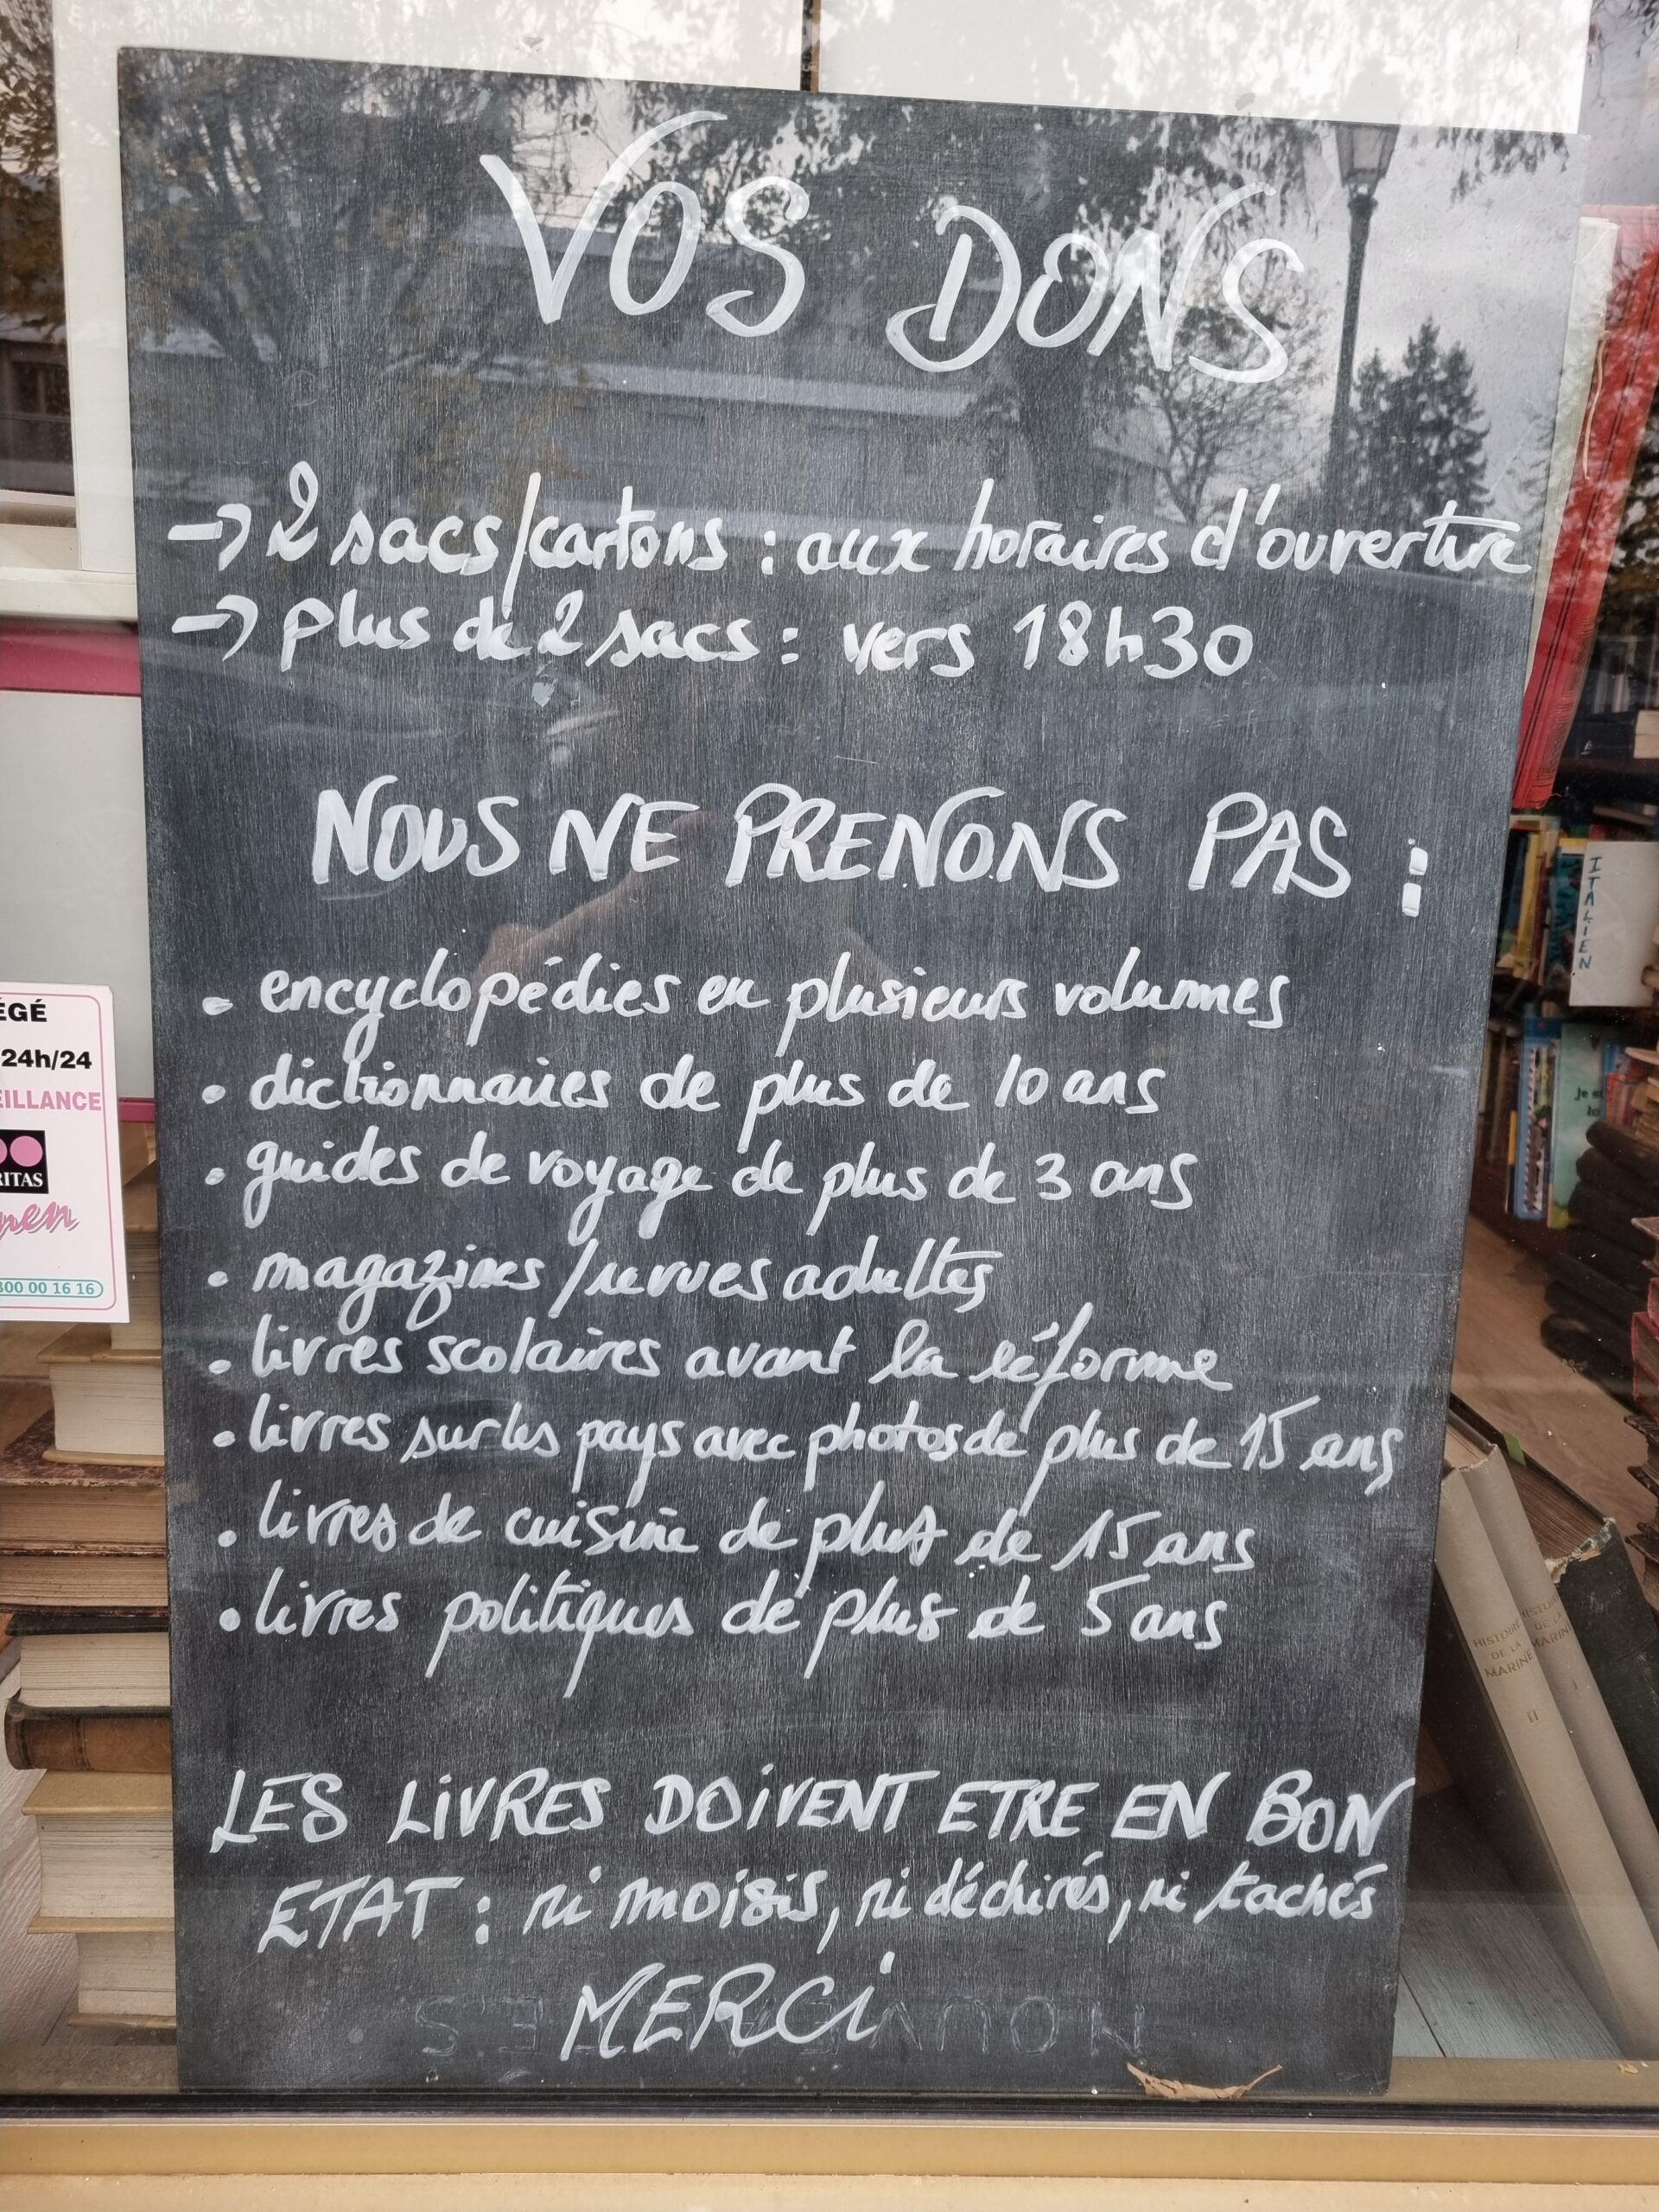 VOS DONS
→ 2 sacs/cartons : aux horaires d'ouverture
→ plus de 2 sacs : vers 18h30
NOUS NE PRENONS PAS :
• encyclopédies en plusieurs volumes
• dictionnaires de plus de 10 ans
• guides de voyage de plus de 3 ans
• magazines/revues adultes
• livres scolaires avant la réforme
• livres sur les pays avec photos de plus de 15 ans
• livres de cuisine de plus de 15 ans
• livres politiques de plus de 5 ans
LES LIVRES DOIVENT ETRE EN BON
ETAT : ni moisis, ni déchirés, ni tachés
MERCI
ÉGÉ
24h/24
EILLANCE
RITAS
300 00 16 16
ITALIEN
HISTOIRE
DE LA
MARINE
II
HISTOIRE
DE LA
MARINE
I